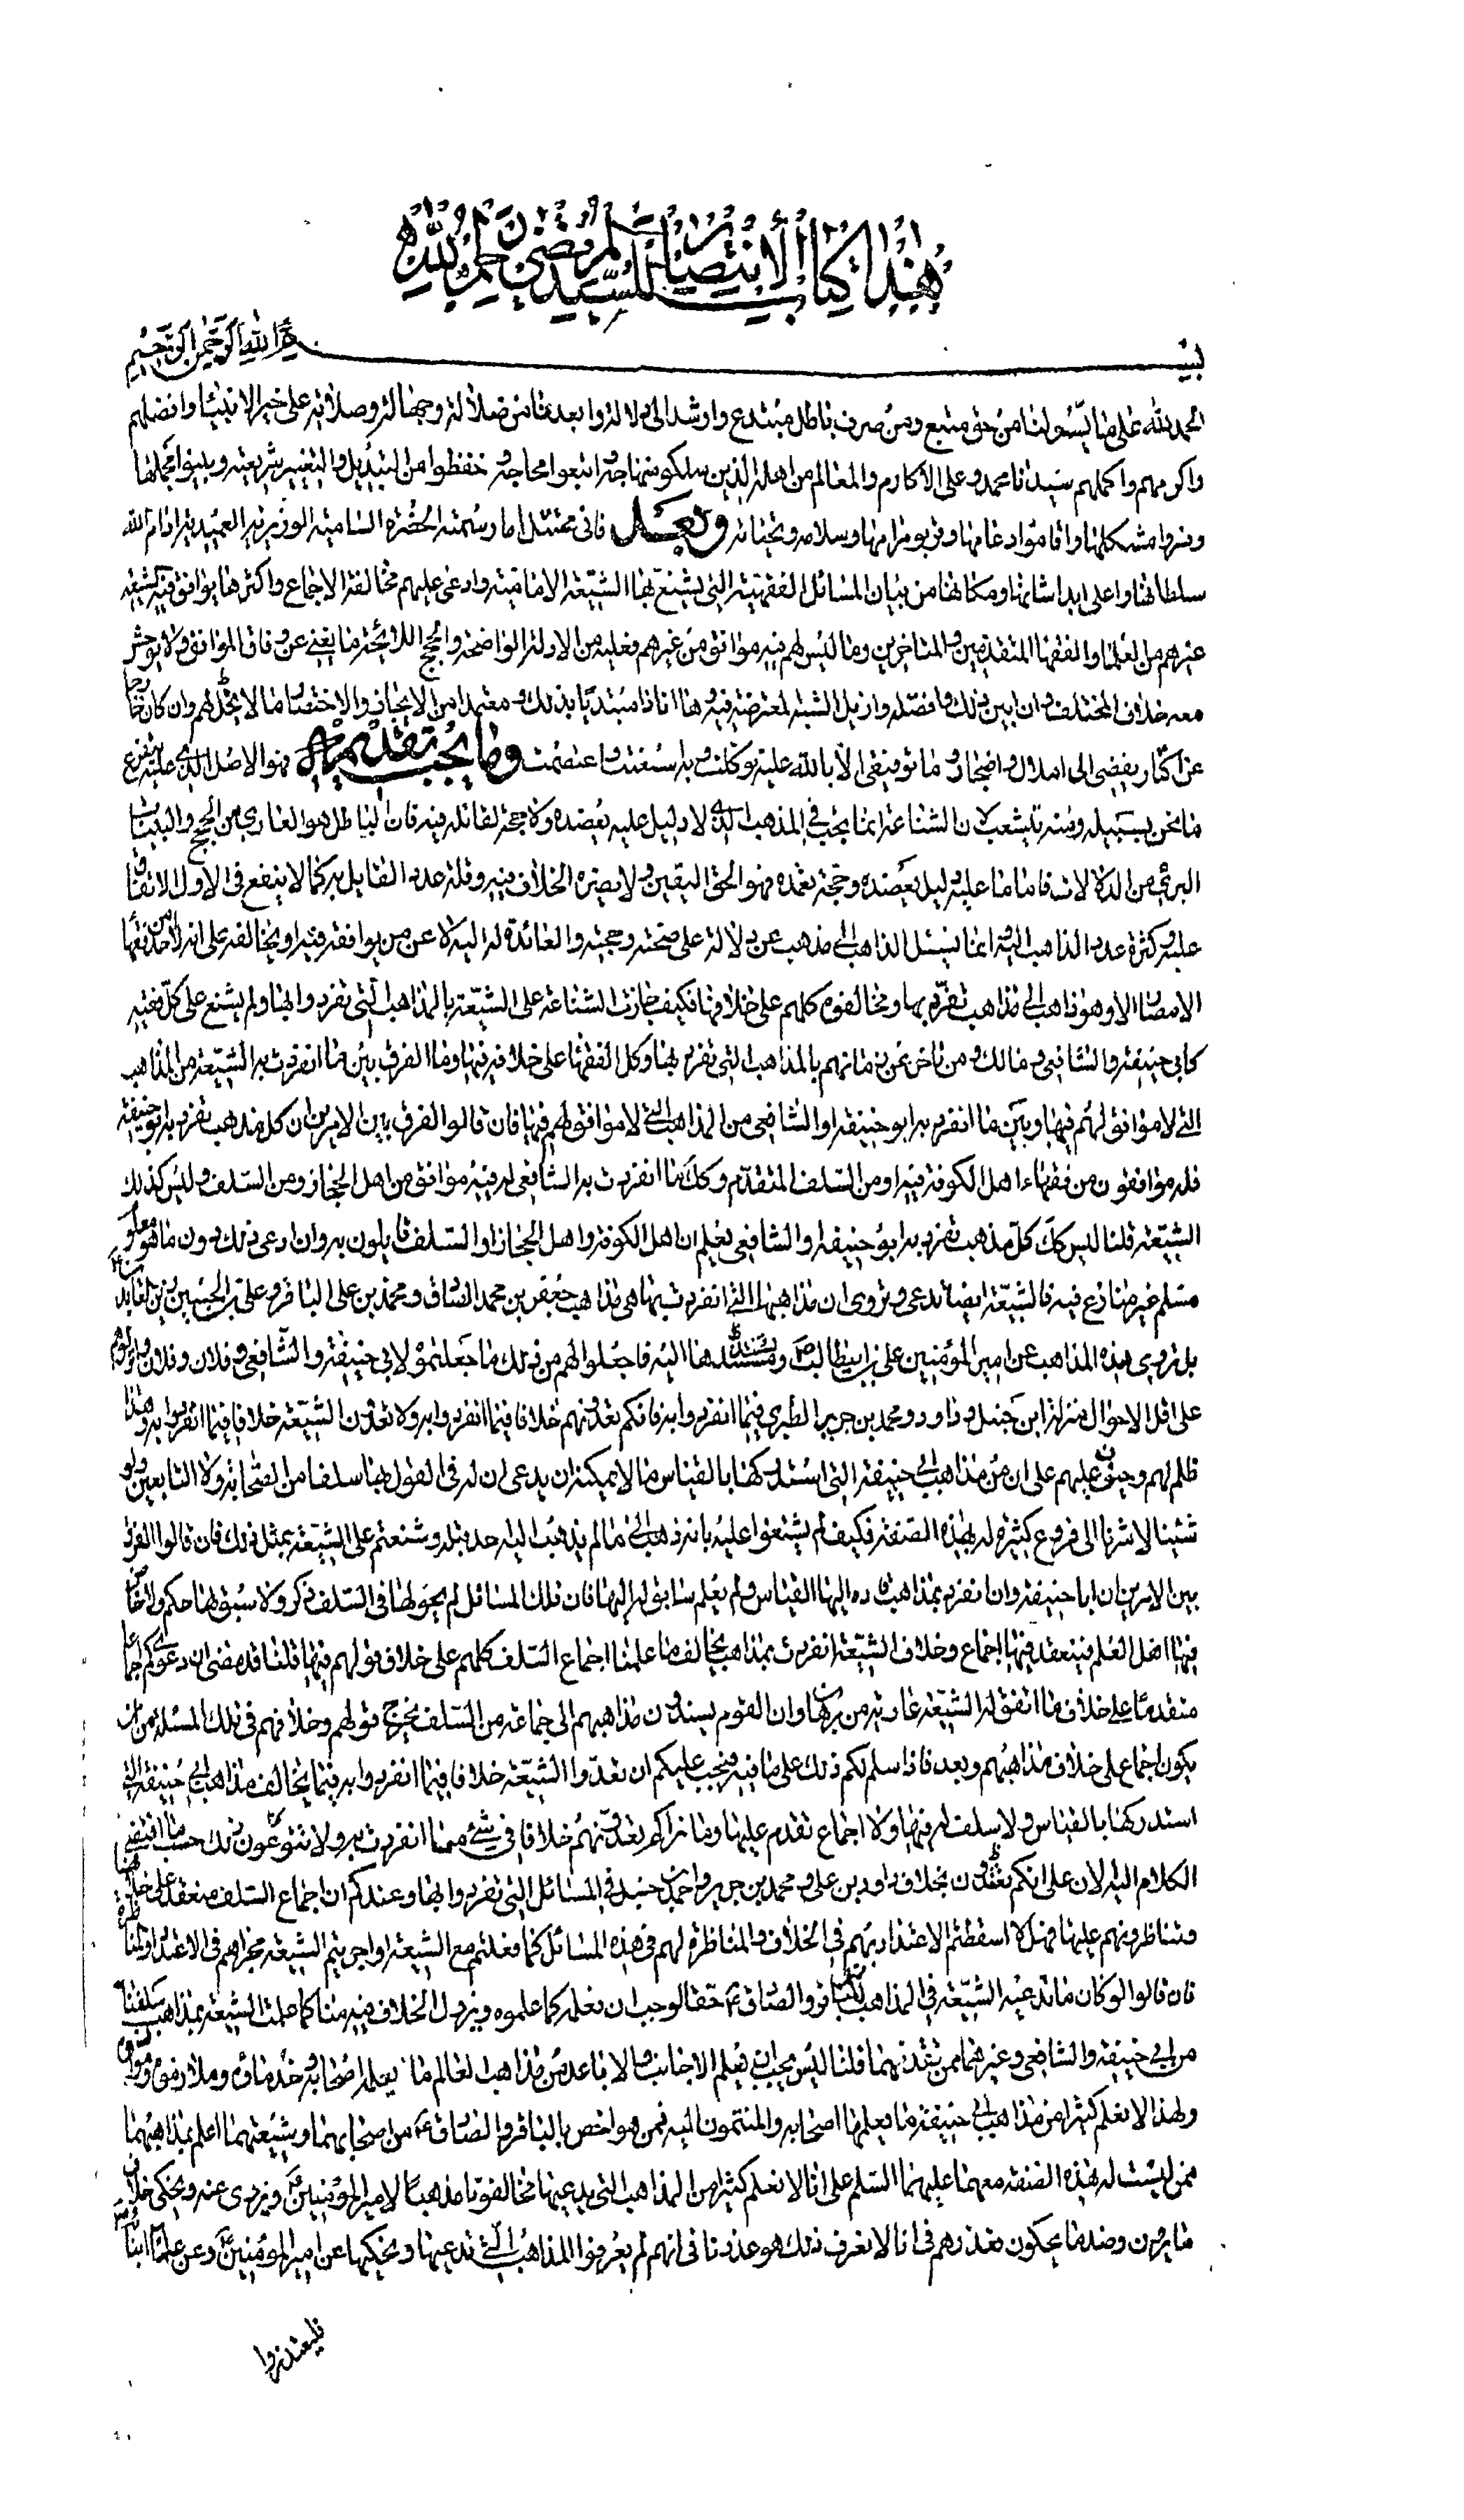 هذا كتاب الانتصار للسيد المرتضى رحمه الله
بسم الله الرحمن الرحيم
الحمد لله على ما يسره لنا من حق متبع ومن صرف باطل مبتدع وارشد الى دلالة وابعدنا من ضلالة وجهالة وصلاته على خير الانبياء وافضلهم
واكرمهم واكملهم سيدنا محمد وعلى الاكارم والمعالم من اهله الذين سلكوا منهاجه واتبعوا محاجه وحفظوا من التبديل والتغيير شريعته وبينوا مجملها
وفسروا مشكلها واقاموا دعامها وقربوا مرامها وسلامه وتحياته وبعد فانى ممتثل ما رسمته الحضرة السامية الوزيرية العميدية ادام الله
سلطانها واعلى ابدا شانها ومكانها من بيان المسائل الفقهية التى يشنع بها الشيعة الامامية وادعى عليهم مخالفة الاجماع واكثرها يوافق فيه الشيعة
غيرهم من العلماء والفقهاء المتقدمين والمتاخرين وما ليس لهم فيه موافق من غيرهم فعليه من الادلة الواضحة والحجج اللائحة ما يغنى عن وفاق الموافق ولا يوحش
معه خلاف المختلف وان ابين ذلك وافصله وازيل الشبه المعترضة فيه وها انا ذا مبتديا بذلك ومعتمدا من الايجاز والاختصار ما لا يخل بهم وان كان خارجا
عن اكثار يفضى الى املال واضجار وما توفيقى الا بالله عليه توكلت وبه استعنت واعتصمت ومما يجب تقديمه فهو الاصل الذى عليه يتفرع
ما نحن بسبيله ومنه يتشعب لان الشناعة انما يجب فى المذهب الذى لا دليل عليه يعضده ولا حجة لقائله فيه فان الباطل هو العارى من الحجج والبينات
البرى من الدلالات فاما ما عليه دليل يعضده وحجة تعمده فهو الحق اليقين ولا يضره الخلاف فيه وقلة عدد القايل به كما لا ينفع فى الاول الاتفاق
عليه وكثرة عدد الذاهب اليه وانما يسئل الذاهب الى مذهب عن دلالة على صحته وحجيته والقائدة له اليه لا عمن يوافقه فيه او يخالفه على انه لا احد من فقهاء
الامصار الا وهو ذاهب الى مذاهب تفرد بها ومخالفوه كلهم على خلافها فكيف جازت الشناعة على الشيعة بالمذاهب التى تفردوا بها ولم يشنع على كل فقيه
كابى حنيفة والشافعى ومالك ومن تاخر عن زمانهم بالمذاهب التى تفرد بها وكل الفقهاء على خلافه فيها وما الفرق بين ما انفردت به الشيعة من المذاهب
التى لا موافق لهم فيها وبين ما انفرد به ابو حنيفة او الشافعى من المذاهب التى لا موافق لهم فيها فان قالوا الفرق بين الامرين ان كل مذهب تفرد به ابو حنيفة
فله موافقون من فقهاء اهل الكوفة فيه او من السلف المتقدم وكك ما انفردت به الشافعى له فيه موافق من اهل الحجاز ومن السلف وليس كذلك
الشيعة قلنا ليس كك كل مذهب تفرد به ابو حنيفة او الشافعى نعلم ان اهل الكوفة واهل الحجاز او السلف قايلون به وان ادعى ذلك دون ما هو معلوم
مسلم غير منازع فيه فالشيعة ايضا تدعى وتروى ان مذاهبها التى انفردت بها هى مذاهب جعفر بن محمد الصادق ومحمد بن على الباقر وعلى بن الحسين زين العابدين
بل تروى هذه المذاهب عن امير المؤمنين على بن ابيطالب وتسندها اليه فاجعلوا لهم من ذلك ما جعلتموه لابى حنيفة والشافعى وفلان وفلان
على اقل الاحوال منزلة ابن حنبل وداود ومحمد بن جرير الطبرى فيما انفردوا به فانكم تعدونهم خلافا فيما انفردوا به ولا تعدون الشيعة خلافا فيما انفردوا به وهذا
ظلم لهم وحيف عليهم على ان من مذاهب ابى حنيفة التى استدركها بالقياس ما لا يمكنه ان يدعى ان له فى القول بها سلفا من الصحابة ولا التابعين ولو
شئنا لاشرنا الى فروع كثيرة له بهذه الصفة فكيف لم يشنعوا عليه بانه ذهب الى ما لم يذهب اليه احد قبله وشنعتم على الشيعة بمثل ذلك فان قالوا الفرق
بين الامرين ان ابا حنيفة وان تفرد بمذاهب قاده اليها القياس ولم يعلم سابق له اليها فان تلك المسائل لم يجر لها فى السلف ذكر ولا سبق لها حكم ولا خاض
فيها اهل العلم فينعقد فيها اجماع وخلاف الشيعة انفردت بمذاهب يخالف ما علمنا اجماع السلف كلهم على خلاف قولهم فيها قلنا قد مضى ان دعوىكم اجماعا
متقدما على خلاف ما اتفق له الشيعة عارية من برهان وان القوم يسندون مذاهبهم الى جماعة من السلف يخرج قولهم وخلافهم فى تلك المسئلة من ان
يكون اجماع على خلاف مذاهبهم وبعد فاذا سلم لكم ذلك على ما فيه فيجب عليكم ان تعدوا الشيعة خلافا فيما انفردوا به فيما يخالف مذاهب ابى حنيفة التى
استدركها بالقياس ولا سلف له فيها ولا اجماع تقدم عليها وما نراكم تعدونهم خلافا فى شئ مما انفردت به ولا تتنوعون ذلك حسب ما اقتضى
الكلام اليه الان على انكم تعتدون بخلاف داود بن على ومحمد بن جرير واحمد بن حنبل فى المسائل التى تفردوا بها وعندكم ان اجماع السلف منعقد على خلافها
وتناظرونهم عليها فهلا اسقطتم الاعتداد بهم فى الخلاف والمناظرة لهم فى هذه المسائل كما فعلتم مع الشيعة او اجريتم الشيعة مجراهم فى الاعتداد
فان قالوا لو كان ما تدعيه الشيعة فى المذاهب للباقر والصادق ع حقا لوجب ان نعلمه كما علموه ويزول الخلاف فيه منا كما علمت الشيعة بمذاهب سلفنا
من ابى حنيفة والشافعى وغيرهما ممن تقدمهما قلنا ليس يجب ان يعلم الاجانب والاباعد من مذاهب العالم ما يعلمه اصحابه وخدمائه وملازموه
ولهذا لا نعلم كثيرا من مذاهب ابى حنيفة ما يعلمها اصحابه والمنتمون اليه فمن هو اخص بالباقر والصادق ع من اصحابهما وشيعتهما اعلم بمذاهبهما
ممن ليست له هذه الصفة معهما عليهما السلم على انا لا نعلم كثيرا من المذاهب التى يدعيها مخالفونا مذهبا لامير المؤمنين ع ويروى عنه ويحكى خلاف
ما يروون وضد ما يحكون فعذرهم فى انا لا نعرف ذلك هو عذرنا فى انهم لم يعرفوا المذاهب التى ندعيها ونحكيها عن امير المؤمنين ع وعن علماء ابنائه
فليعتذروا